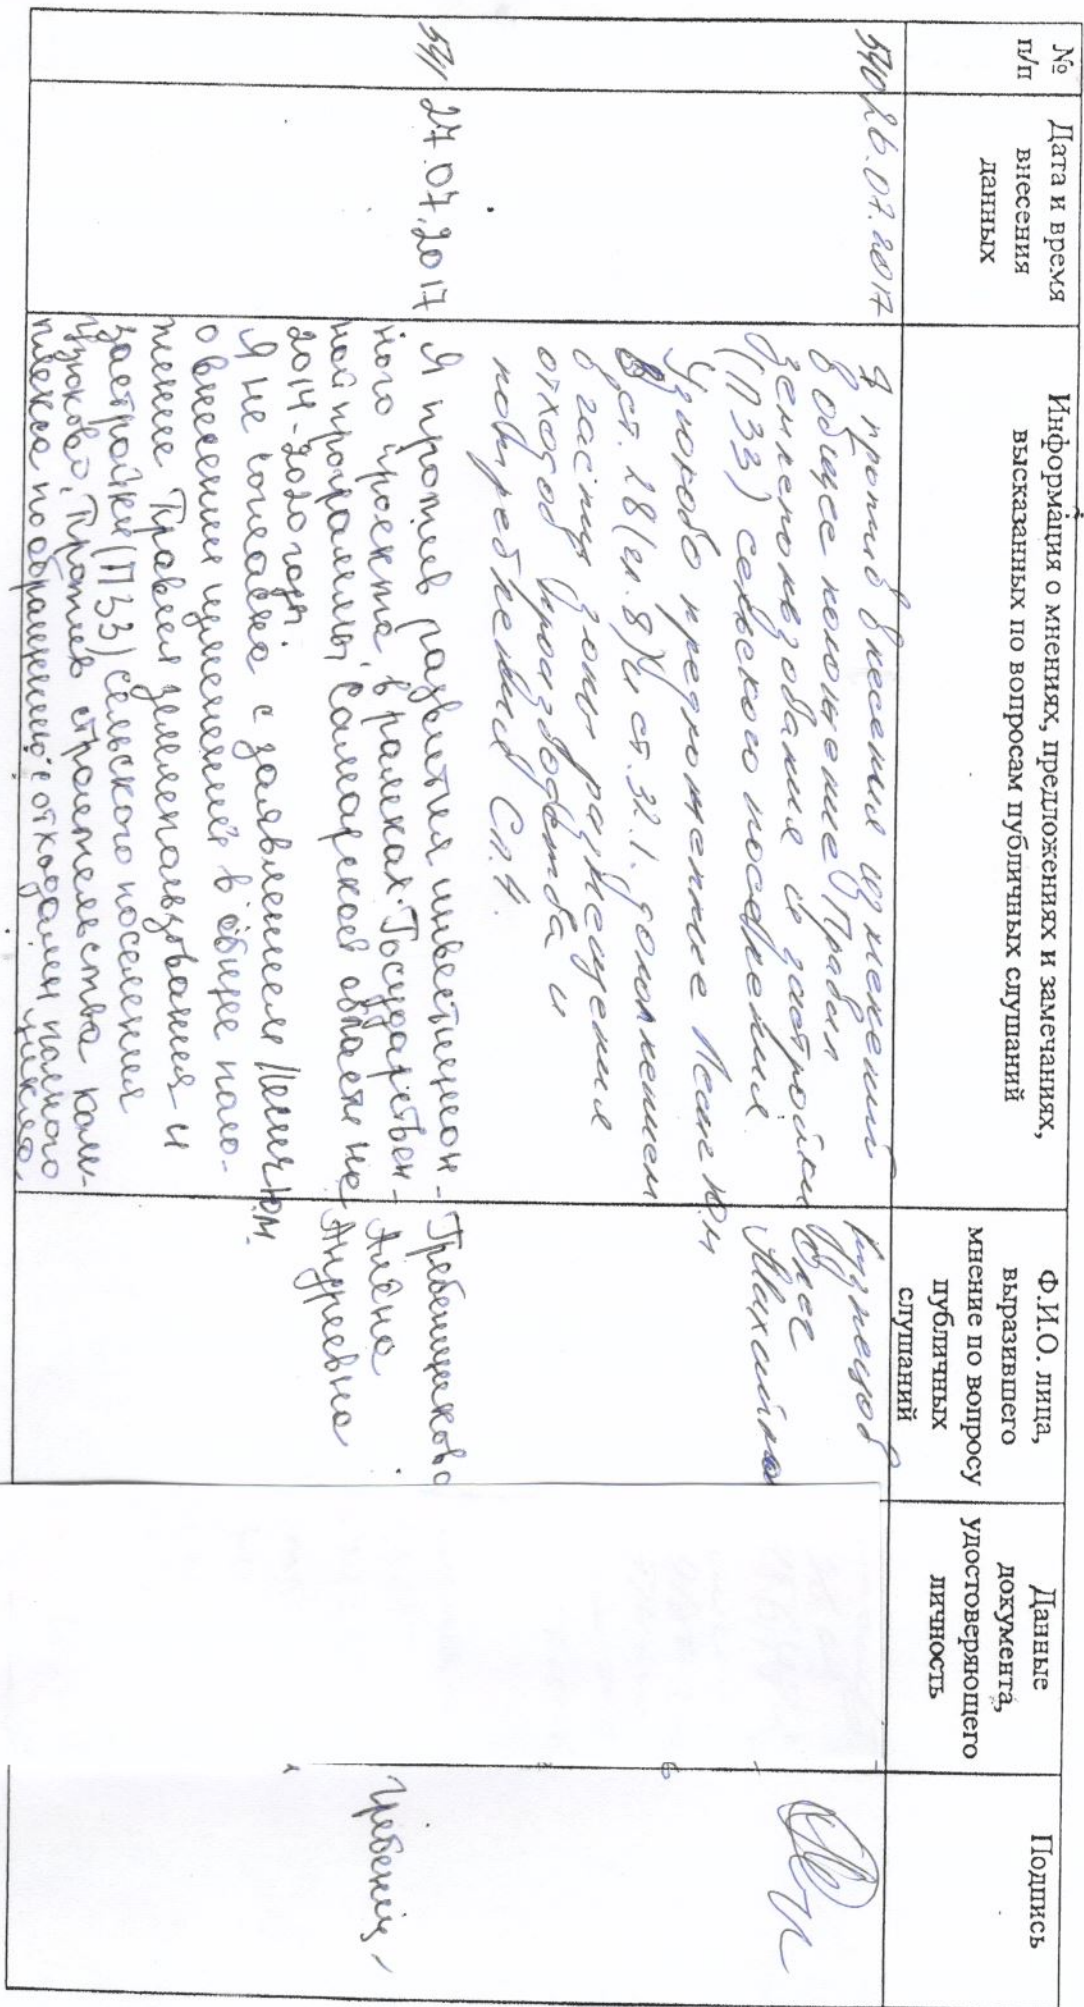 №
п/п
Дата и время
внесения
данных
Информация о мнениях, предложениях и замечаниях,
высказанных по вопросам публичных слушаний
Ф.И.О. лица,
выразившего
мнение по вопросу
публичных
слушаний
Данные
документа,
удостоверяющего
личность
Подпись
540
26.07.2017
Я против внесения изменений
в общее положение Правил
землепользования и застройки
(ПЗЗ) сельского поселения
Узюково предложенные Лепис Ю.М
в ст. 28 (гл. 8) и ст. 32.1. дополнением
в частину зоны размещения
отходов производства и
потребления Сп.4.
Кузнецов
Олег
541
27.07.2017
Я против развития инвестицион-
ного проекта, в рамках Государствен-
ной программы Самарской области на
2014-2020 годы.
Я не согласна с заявлением Ю.М.
о внесении изменений в общее поло-
жение Правил землепользования и
застройки (ПЗЗ) сельского поселения
Узюково. Против строительства ком-
плекса по обращению с отходами полного
цикла.
Гребенщикова
Алёна
Андреевна
Гребенщ